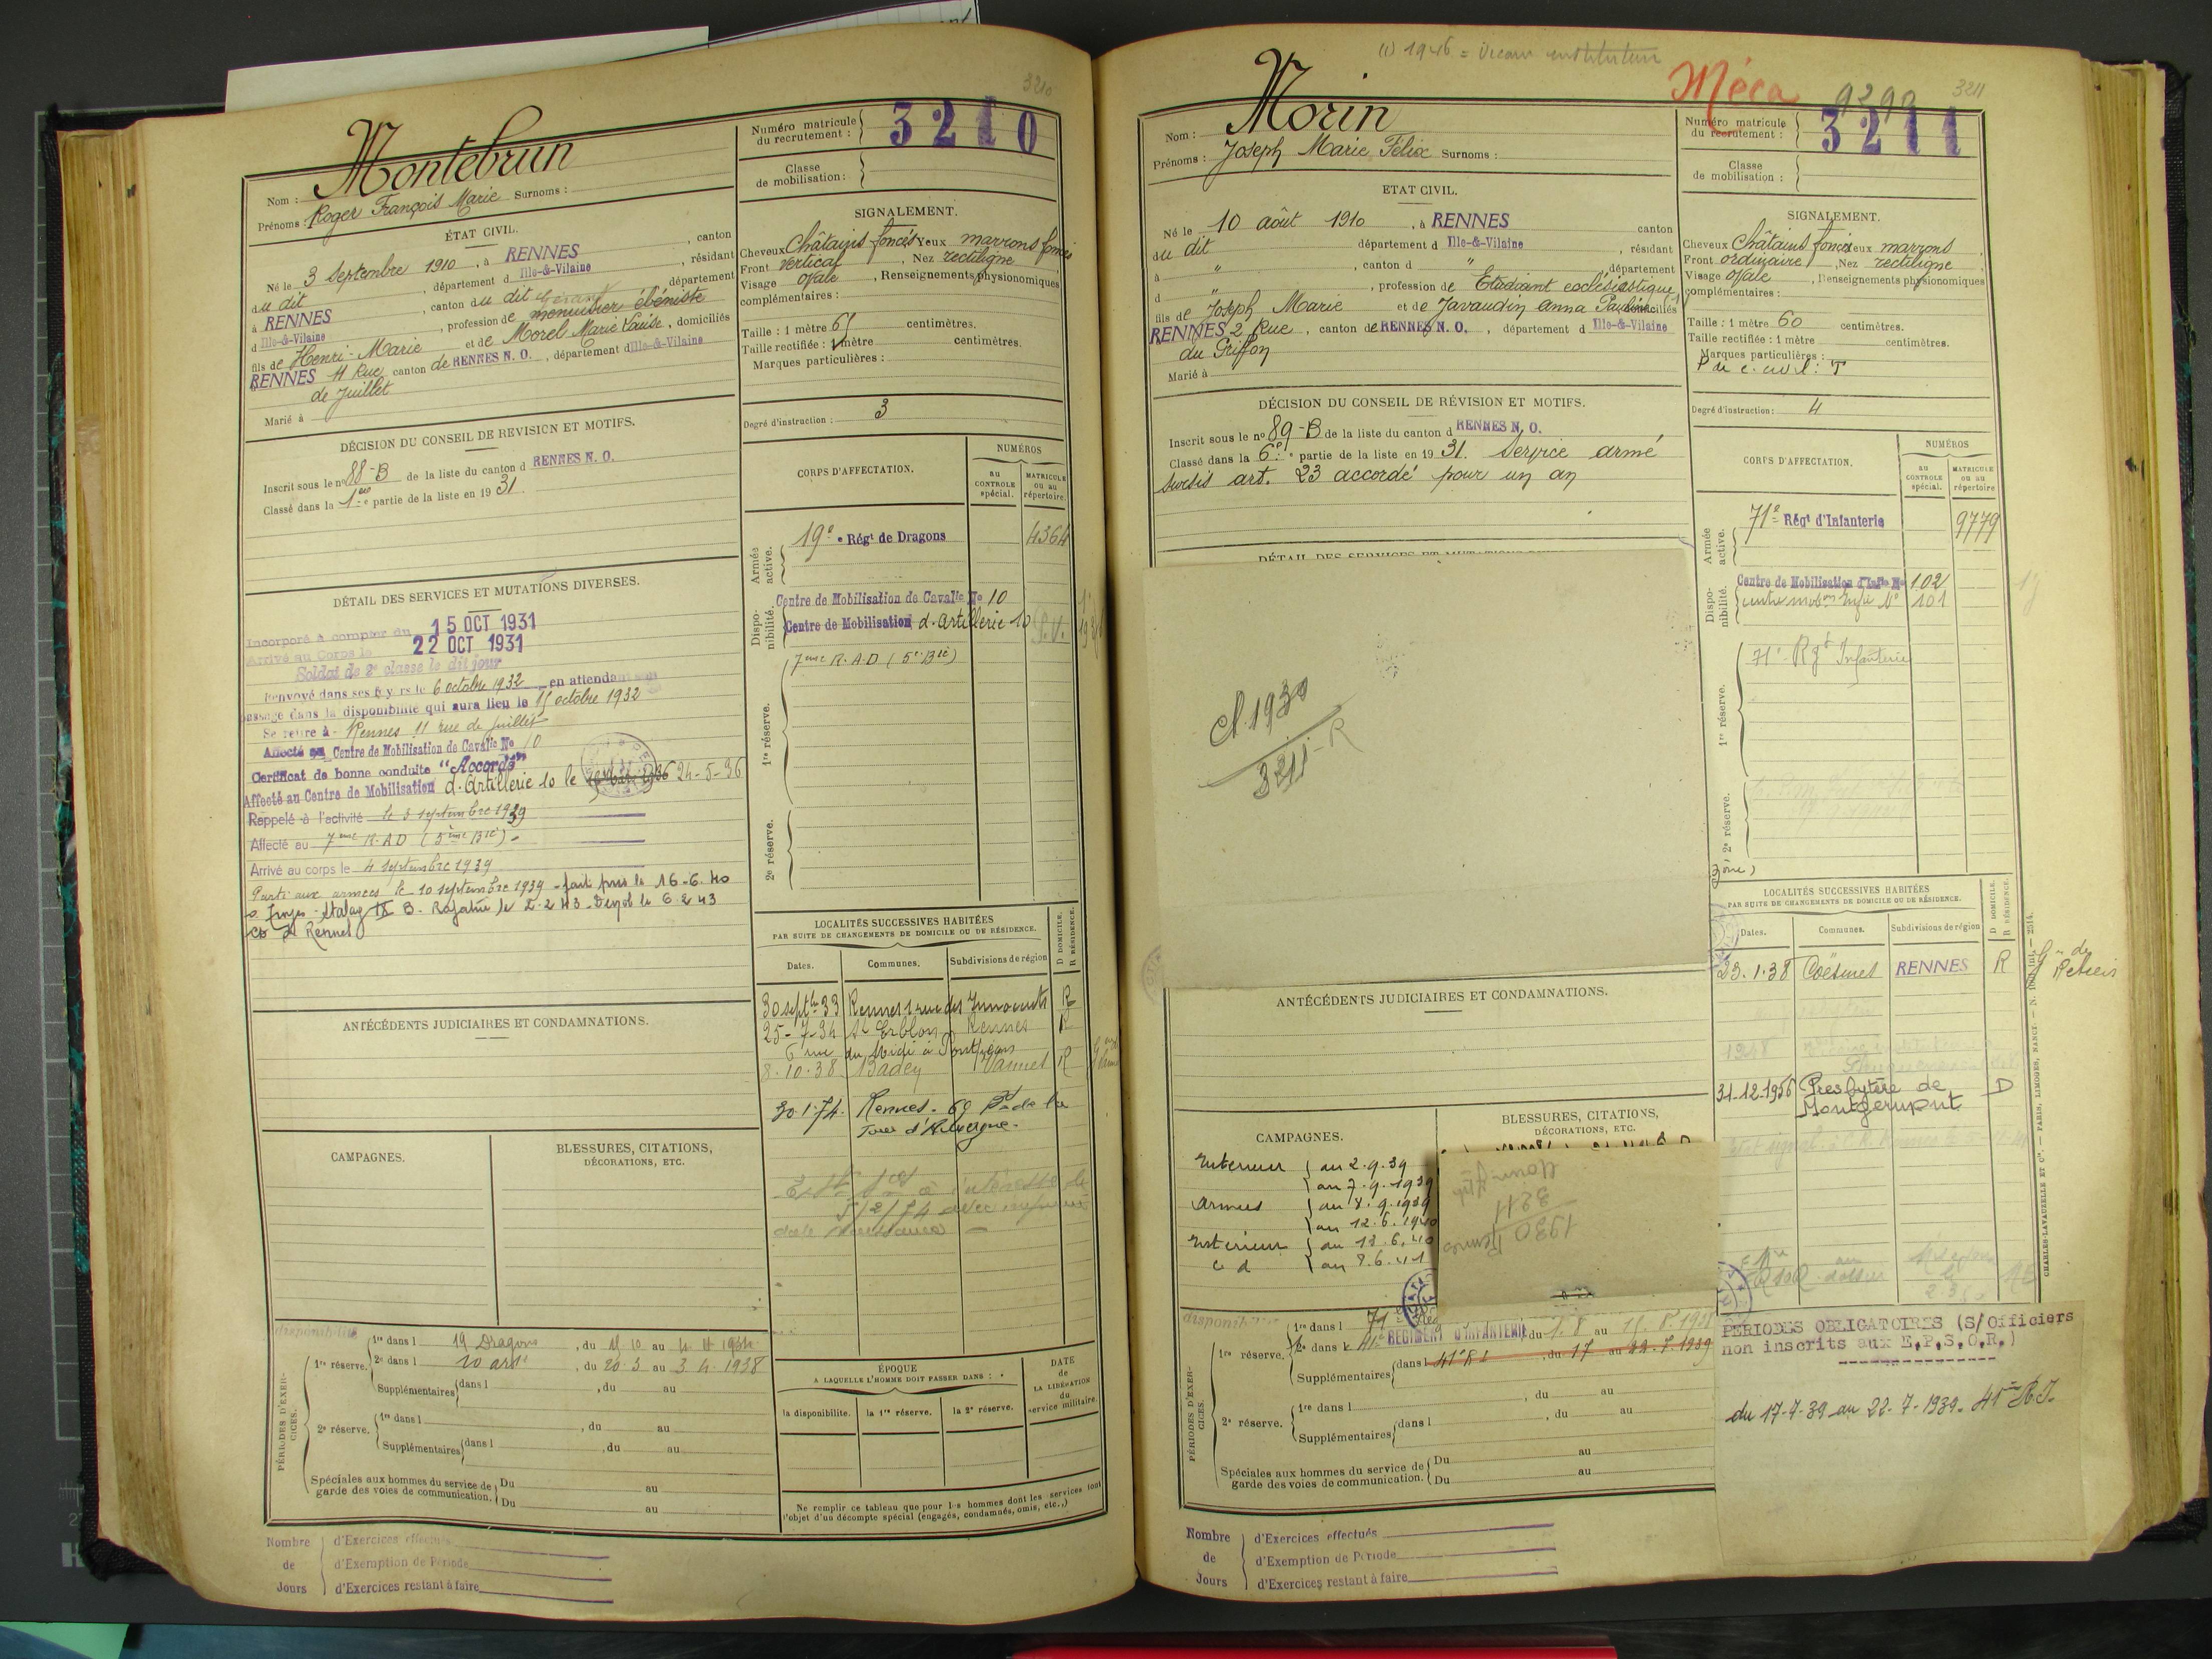 3210
Montebrun
Nom :
Prénoms : Roger François Marie Surnoms :
Numéro matricule du recrutement : 3210
Classe de mobilisation :
ÉTAT CIVIL.
Né le 3 Septembre 1910, à RENNES, canton
du dit, département d Ille-&-Vilaine, résidant
à RENNES, canton du dit, département
d Ille-&-Vilaine, profession de menuisier ébéniste
fils de Henri-Marie et de Morel Marie Louise, domiciliés
RENNES 11 Rue canton de RENNES N. O., département d Ille-&-Vilaine
de Juillet
Marié à
SIGNALEMENT.
Cheveux Châtains foncés Yeux marrons foncés
Front vertical, Nez rectiligne
Visage ovale, Renseignements physionomiques
complémentaires :
Taille : 1 mètre 65 centimètres.
Taille rectifiée : 1 mètre centimètres.
Marques particulières :
Degré d'instruction : 3
DÉCISION DU CONSEIL DE REVISION ET MOTIFS.
Inscrit sous le no 88-B de la liste du canton d RENNES N. O.
Classé dans la 1ère partie de la liste en 1931.
CORPS D'AFFECTATION.
NUMÉROS
au CONTROLE spécial.
MATRICULE ou au répertoire
Armée active.
19e Régt de Dragons 4364
Disponibilité.
Centre de Mobilisation de Cavalie No 10
Centre de Mobilisation d'Artillerie 10
1re réserve.
7eme R.A.D (5e Bie)
2e réserve.
DÉTAIL DES SERVICES ET MUTATIONS DIVERSES.
Incorporé à compter du 15 OCT 1931
Arrivé au Corps le 22 OCT 1931
Soldat de 2e classe le dit jour
Renvoyé dans ses foyers le 6 octobre 1932 en attendant son
passage dans la disponibilité qui aura lieu le 15 octobre 1932
Se retire à Rennes 11 rue de Juillet
Affecté au Centre de Mobilisation de Cavalie No 10
Certificat de bonne conduite "Accordé"
Affecté au Centre de Mobilisation d'Artillerie 10 le 24-5-36
Rappelé à l'activité le 3 septembre 1939
Affecté au 7eme R.A.D (5ème Bie)
Arrivé au corps le 4 septembre 1939
Parti aux armées le 10 septembre 1939 - fait pris le 16-6-40
Stalag IX B. Rapatrié le 2-2-43 - Démob le 6-2-43
Rennes
LOCALITÉS SUCCESSIVES HABITÉES
PAR SUITE DE CHANGEMENTS DE DOMICILE OU DE RÉSIDENCE.
Dates. Communes. Subdivisions de région D DOMICILE. R RÉSIDENCE.
30 septbre 33 Rennes 1 rue des Innocents R
25-7-34 St Erblon Rennes R
6 rue du Midi à Pontpéan
8.10.38 Baden Vannes R
30.1.74. Rennes - 69 Bd de la
Tour d'Auvergne.
ANTÉCÉDENTS JUDICIAIRES ET CONDAMNATIONS.
CAMPAGNES.
BLESSURES, CITATIONS,
DÉCORATIONS, ETC.
disponibilité
PÉRIODES D'EXERCICES.
1re réserve.
1re dans l 19 Dragons, du au
2e dans l 10 art, du 20-3 au 3 4. 1938
Supplémentaires dans l, du au
2e réserve.
1re dans l, du au
Supplémentaires dans l, du au
Spéciales aux hommes du service de garde des voies de communication. Du au
Du au
ÉPOQUE
A LAQUELLE L'HOMME DOIT PASSER DANS :
la disponibilité. la 1re réserve. la 2e réserve.
DATE de LA LIBÉRATION du service militaire.
Ne remplir ce tableau que pour les hommes dont les services font
l'objet d'un décompte spécial (engagés, condamnés, omis, etc.,)
Nombre de Jours
d'Exercices effectués
d'Exemption de Période
d'Exercices restant à faire
(1) 1946 =
Méca 9299
3211
Morin
Nom :
Prénoms : Joseph Marie Félix Surnoms :
Numéro matricule du recrutement : 3211
Classe de mobilisation :
ETAT CIVIL.
Né le 10 août 1910, à RENNES canton
du dit département d Ille-&-Vilaine, résidant
à ", canton d ", département
d ", profession de Etudiant ecclésiastique
fils de Joseph Marie et de Javaudin Anna Pauline domiciliés
RENNES 2 Rue, canton de RENNES N. O., département d Ille-&-Vilaine
du Griffon
Marié à
SIGNALEMENT.
Cheveux Châtains foncés Yeux marrons
Front ordinaire, Nez rectiligne
Visage Ovale, Renseignements physionomiques
complémentaires :
Taille : 1 mètre 60 centimètres.
Taille rectifiée : 1 mètre centimètres.
Marques particulières :
P de c. civil : T
Degré d'instruction : 4
DÉCISION DU CONSEIL DE RÉVISION ET MOTIFS.
Inscrit sous le no 89-B de la liste du canton d RENNES N. O.
Classé dans la 6e partie de la liste en 1931. Service armé
sursis art. 23 accordé pour un an
DÉTAIL DES SERVICES ET MUTATIONS
cl. 1930
3211-R
CORPS D'AFFECTATION.
NUMÉROS
au CONTROLE spécial.
MATRICULE ou au répertoire
Armée active.
71e Régt d'Infanterie 9779
Disponibilité.
Centre de Mobilisation d'Infie No 102
Centre mobon Infie No 101
1re réserve.
71e Rgt Infanterie
2e réserve.
LOCALITÉS SUCCESSIVES HABITÉES
PAR SUITE DE CHANGEMENTS DE DOMICILE OU DE RÉSIDENCE.
Dates. Communes. Subdivisions de région D DOMICILE. R RÉSIDENCE.
23.1.38 Coësmes RENNES R
Gie de Retiers
31-12-1956 Presbytère de D
Montgermont
ANTÉCÉDENTS JUDICIAIRES ET CONDAMNATIONS.
CAMPAGNES.
Intérieur au 2.9.39
au 7.9.1939
Armées au 8.9.1939
au 12.6.1940
Intérieur au 13.6.40
c d au 8.6.41
BLESSURES, CITATIONS,
DÉCORATIONS, ETC.
1930 Rennes
3211
Morin Joseph
disponibilité
PÉRIODES D'EXERCICES.
1re réserve.
1re dans l 71e
2e dans l 41e REGIMENT D'INFANTERIE du 1.8 au 15.8.1938
Supplémentaires dans l 41e RI, du 17 au 22.7.1939
, du au
2e réserve.
1re dans l, du au
Supplémentaires dans l
au
Spéciales aux hommes du service de garde des voies de communication. Du au
Du
PERIODES OBLIGATOIRES (S/Officiers
non inscrits aux E.P.S.O.R.)
du 17-7-39 au 22-7-1939. 41ème R.I.
CHARLES-LAVAUZELLE ET Cie. — PARIS, LIMOGES, NANCY.
Nombre de Jours
d'Exercices effectués
d'Exemption de Période
d'Exercices restant à faire